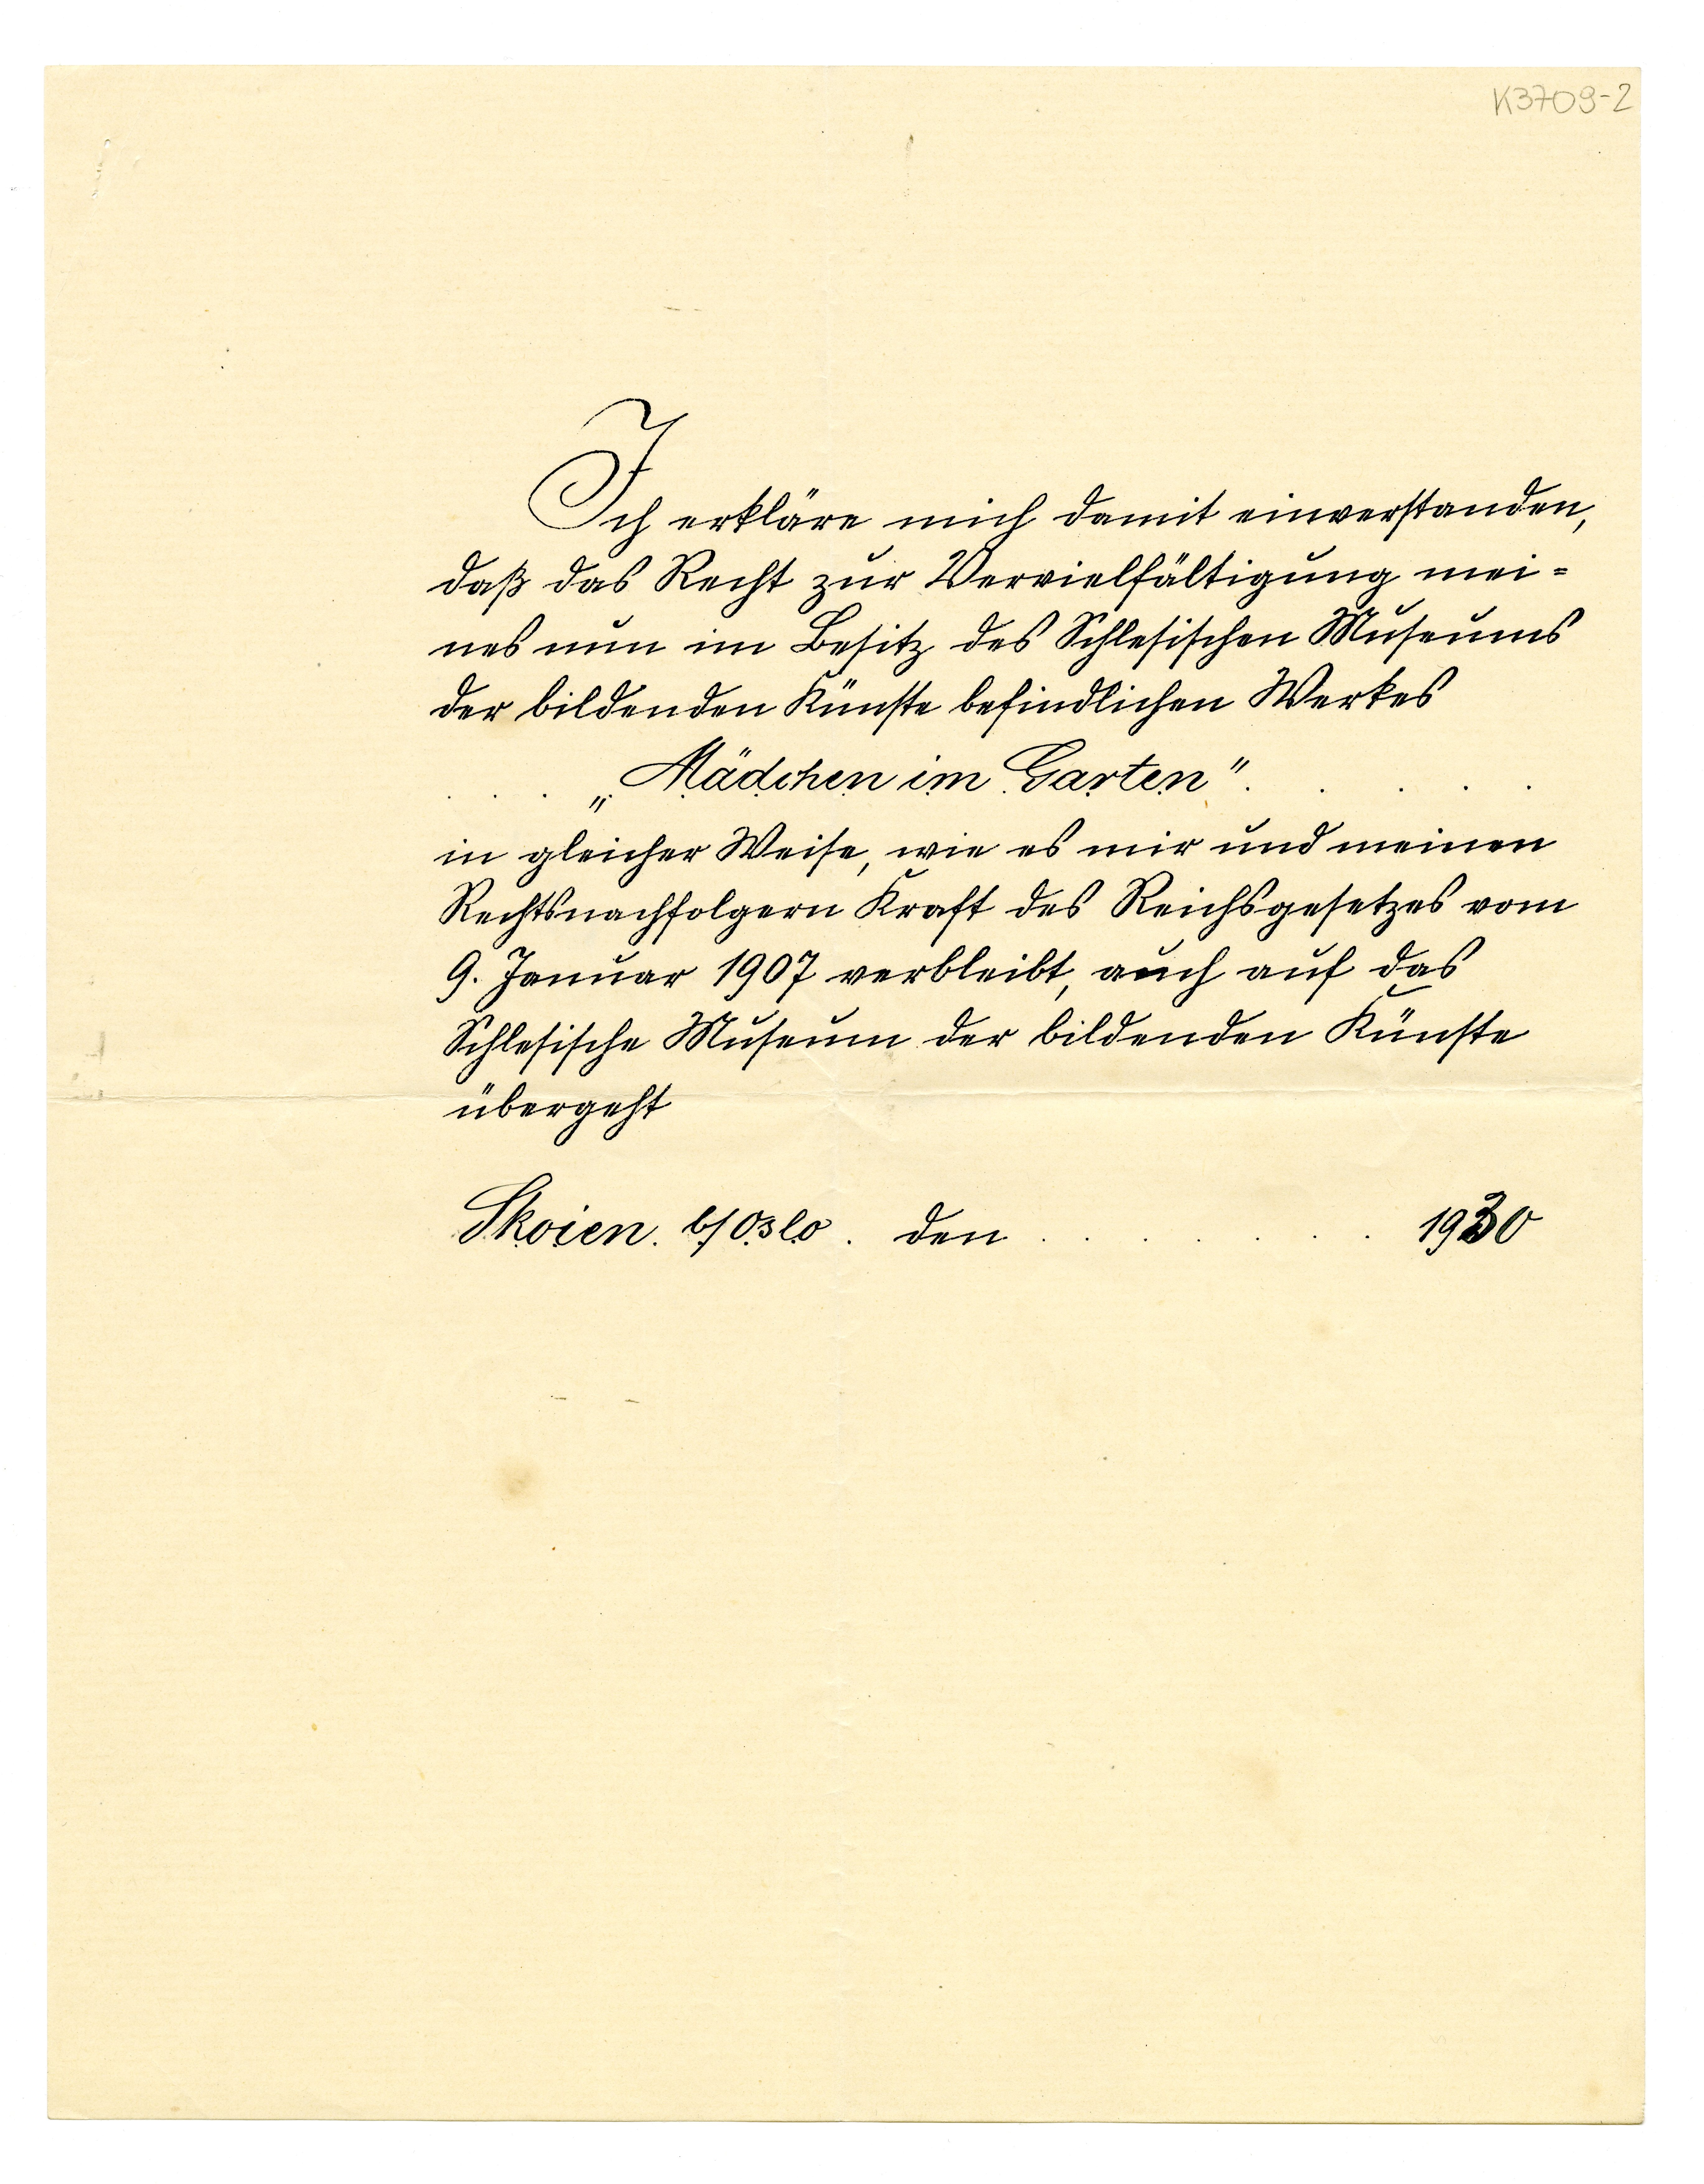 K3709-2
Ich erkläre mich damit einverstanden,
daß das Recht zur Vervielfältigung mei=
nes nun im Besitz des Schlesischen Museums
der bildenden Künste befindlichen Werkes
. . . „Mädchen im Garten". . . . . .
in gleicher Weise, wie es mir und meinen
Rechtsnachfolgern Kraft des Reichsgesetzes vom
9. Januar 1907 verbleibt, auch auf das
Schlesische Museum der bildenden Künste
übergeht
Skoien. b/Oslo. den . . . . . . . 1930